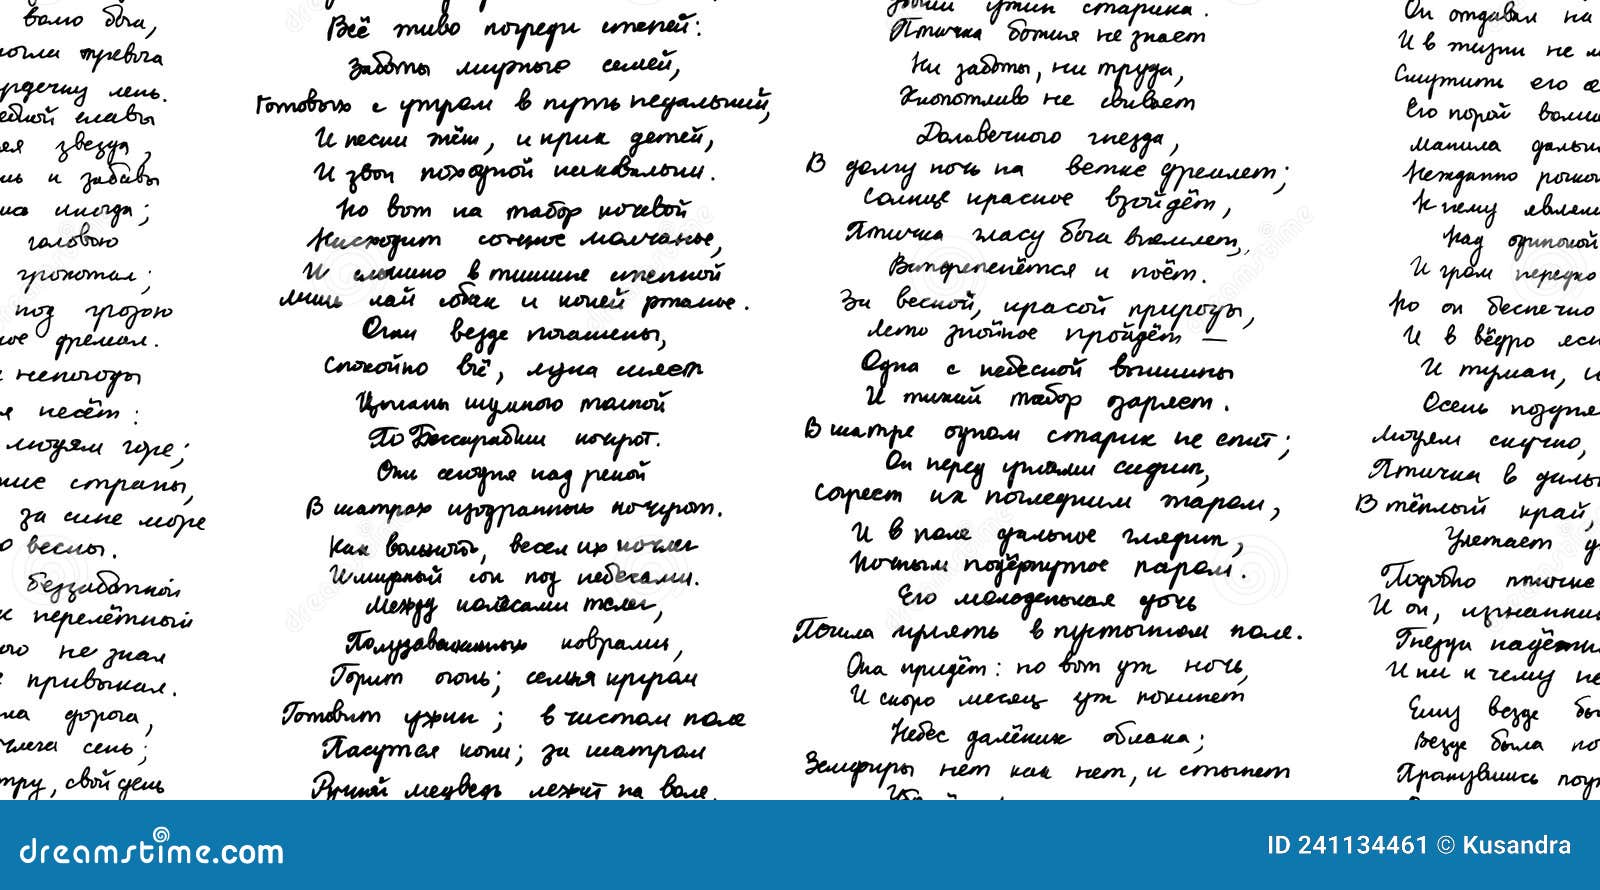 волю бога,
могла тревога
сердечну лень.
ебной славы
ая звезда,
шь и забавы
ись иногда;
головою
грохотал;
под грозою
ное дремал.
непогоды
я несёт:
людям горе;
ние страны,
за сине море
о весны.
беззаботной
к перелётный
ого не знал
е привыкал.
ла дорога,
члега сень;
тру, свой день
Всё живо посреди степей:
Заботы мирные семей,
Готовых с утром в путь недальний,
И песни жён, и крик детей,
И звон походной наковальни.
Но вот на табор кочевой
Нисходит сонное молчанье,
И слышно в тишине степной
Лишь лай собак и коней ржанье.
Огни везде погашены,
Спокойно всё, луна сияет
Цыганы шумною толпой
По Бессарабии кочуют.
Они сегодня над рекой
В шатрах изодранных ночуют.
Как вольность, весел их ночлег
И мирный сон под небесами.
Между колёсами телег,
Полузавешанных коврами,
Горит огонь; семья кругом
Готовит ужин; в чистом поле
Пасутся кони; за шатром
Ручной медведь лежит на воле.
ужин старика.
Птичка божия не знает
Ни заботы, ни труда,
Хлопотливо не свивает
Долговечного гнезда,
В долгу ночь на ветке дремлет;
Солнце красное взойдёт,
Птичка гласу бога внемлет,
Встрепенётся и поёт.
За весной, красой природы,
Лето знойное пройдёт —
Одна с небесной вышины
И тихий табор озаряет.
В шатре одном старик не спит;
Он перед углями сидит,
Согрет их последним жаром,
И в поле дальное глядит,
Ночным подёрнутое паром.
Его молоденькая дочь
Пошла гулять в пустынном поле.
Она придёт: но вот уж ночь,
И скоро месяц уж покинет
Небес далёких облака;
Земфиры нет как нет, и стынет
Он отдавал на
И в жизни не м
Смутить его се
Его порой волше
Манила дальн
Нежданно роско
К нему являли
Над одинокой
И гром нередко
Но он беспечно
И в вёдро ясн
И туман, и
Осень поздня
Людям скучно,
Птичка в даль
В тёплый край,
Улетает д
Подобно птичке
И он, изгнанни
Гнезда надёжн
И ни к чему не
Ему везде бы
Везде была но
Пранувшись поут
dreamstime.com
ID 241134461 © Kusandra